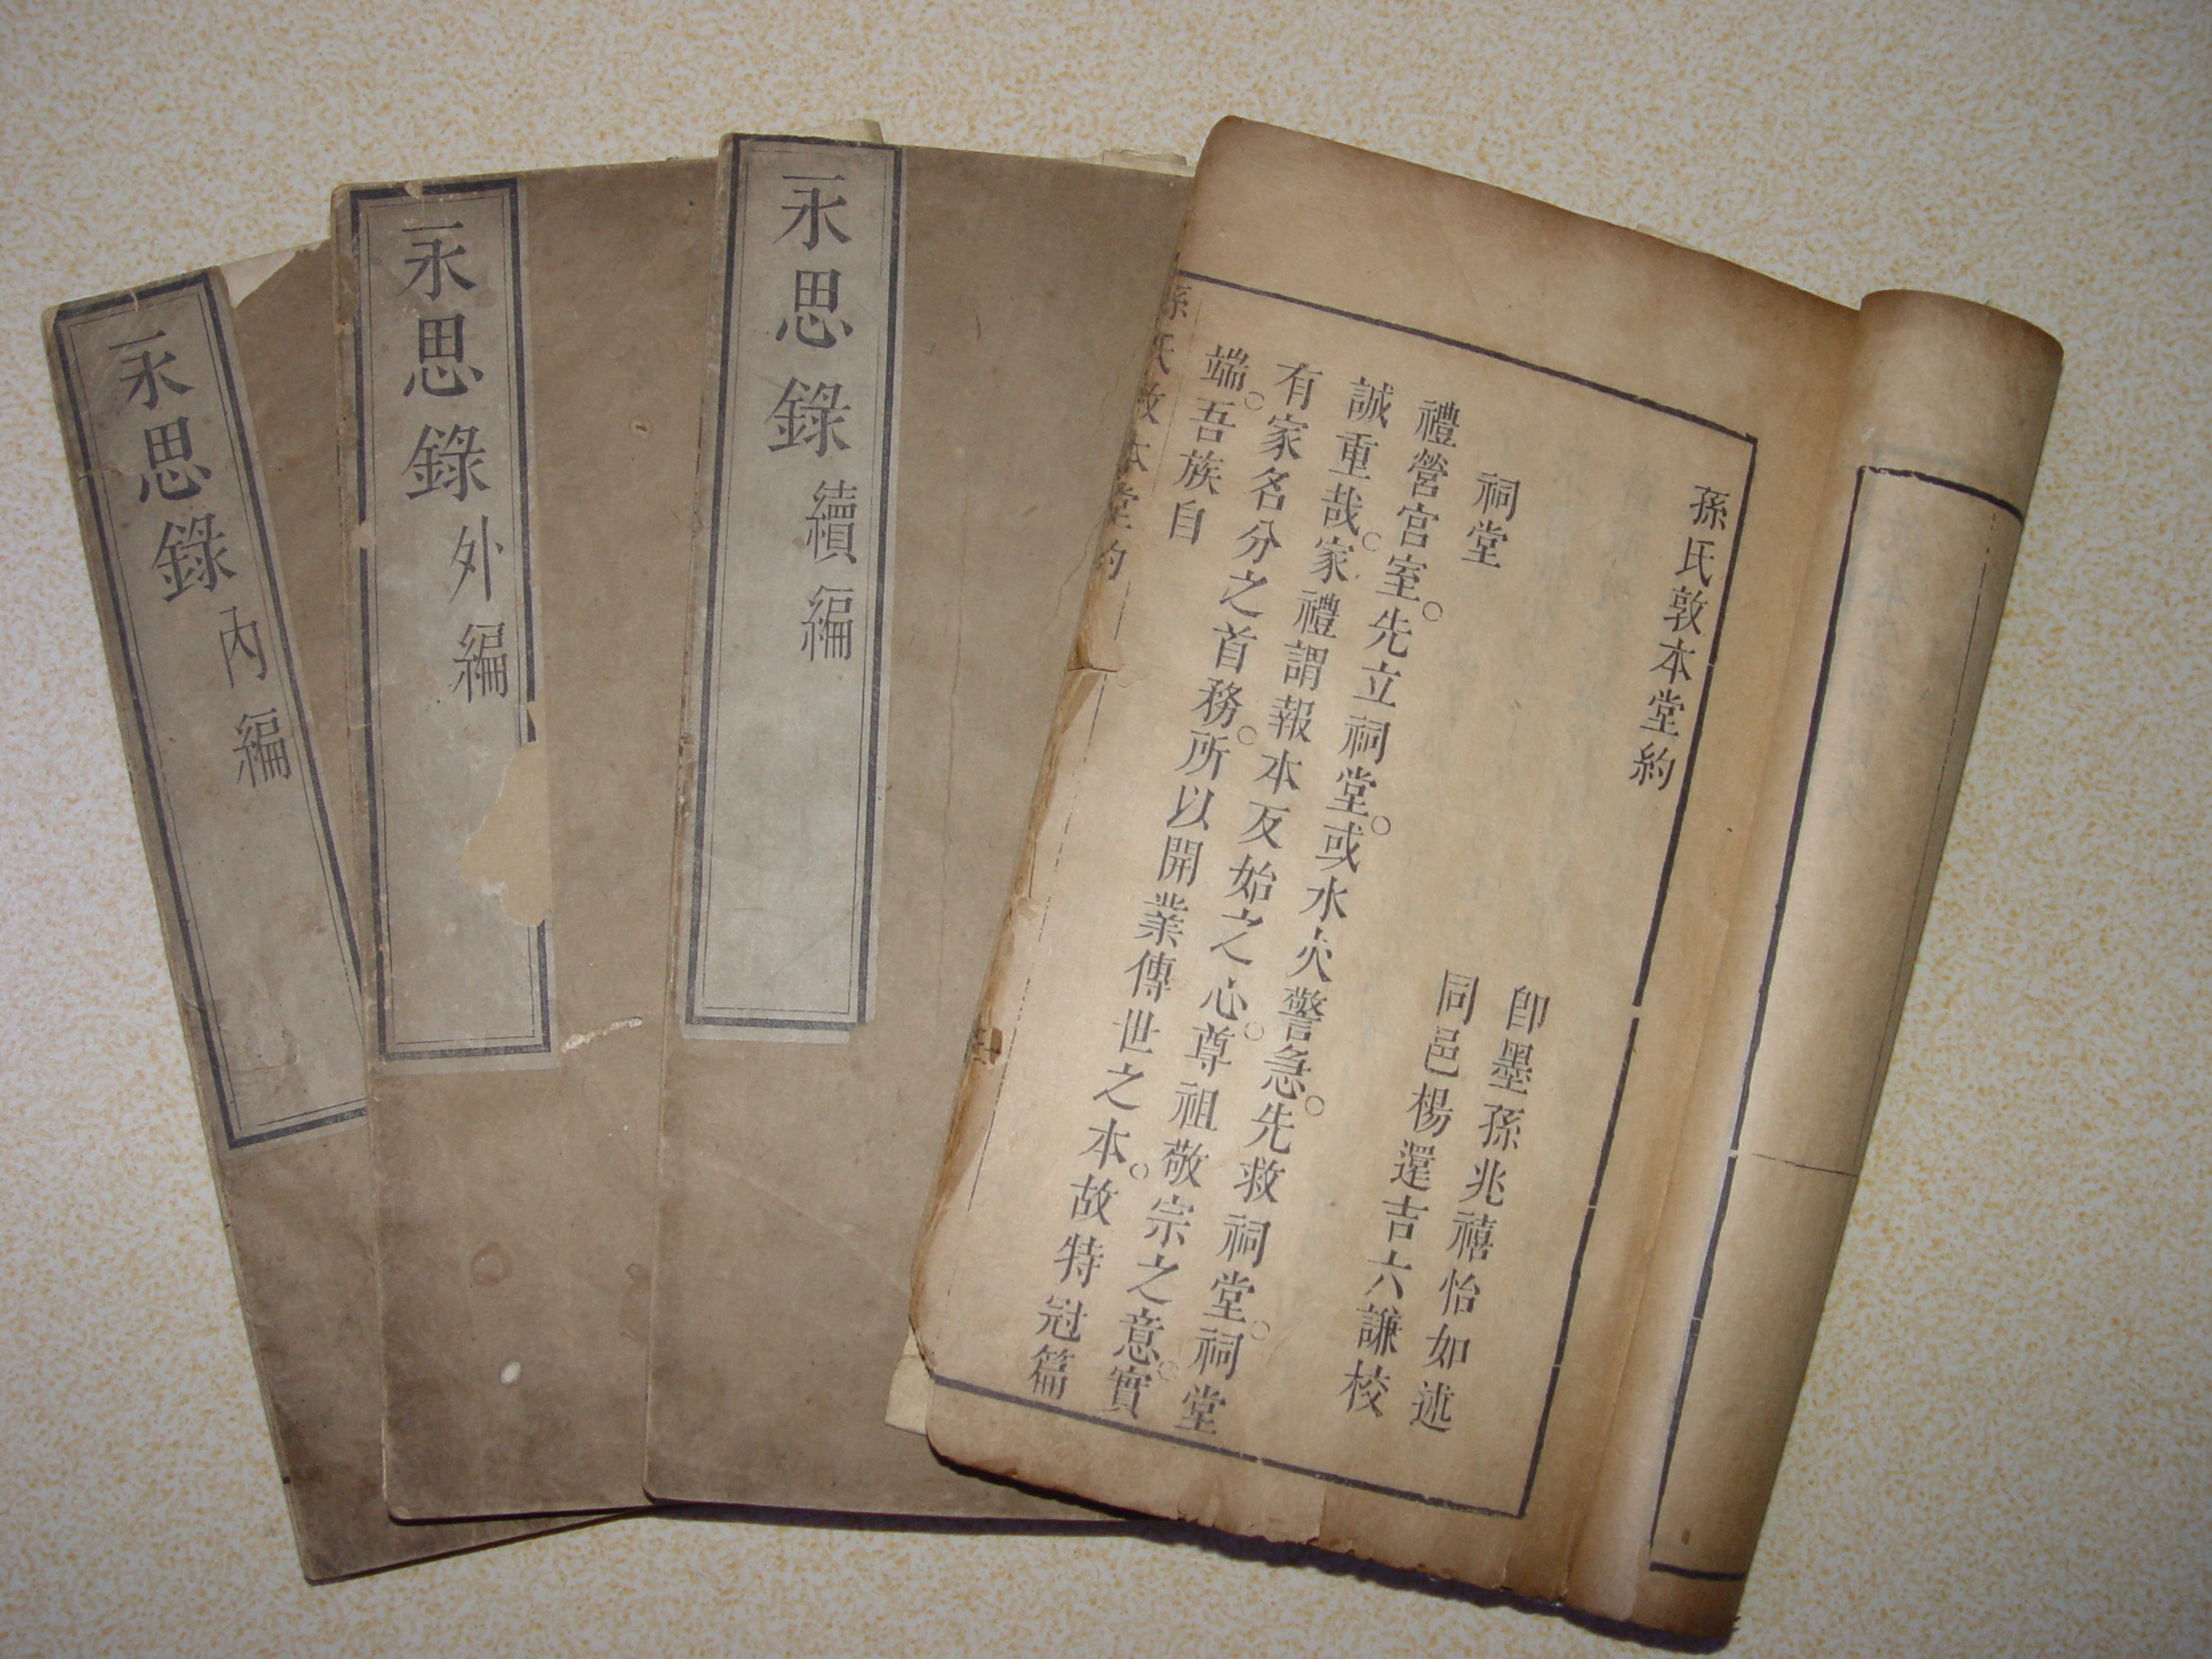 永思錄內編
永思錄外編
永思錄續編
孫氏敦本堂約
卽墨孫兆禧怡如述
同邑楊還吉六謙校
祠堂
禮營宫室。先立祠堂。或水火警急。先救祠堂。祠堂
誠重哉。家禮謂報本反始之心。尊祖敬宗之意。實
有家名分之首務。所以開業傳世之本。故特冠篇
端。吾族自
孫氏敦本堂約